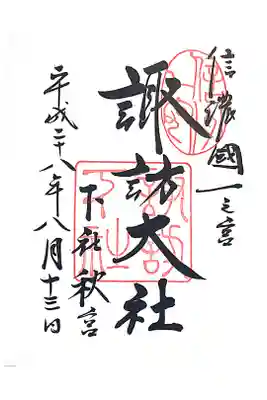 信濃國一之宮
諏訪大社
下社秋宮
平成二十八年八月十三日